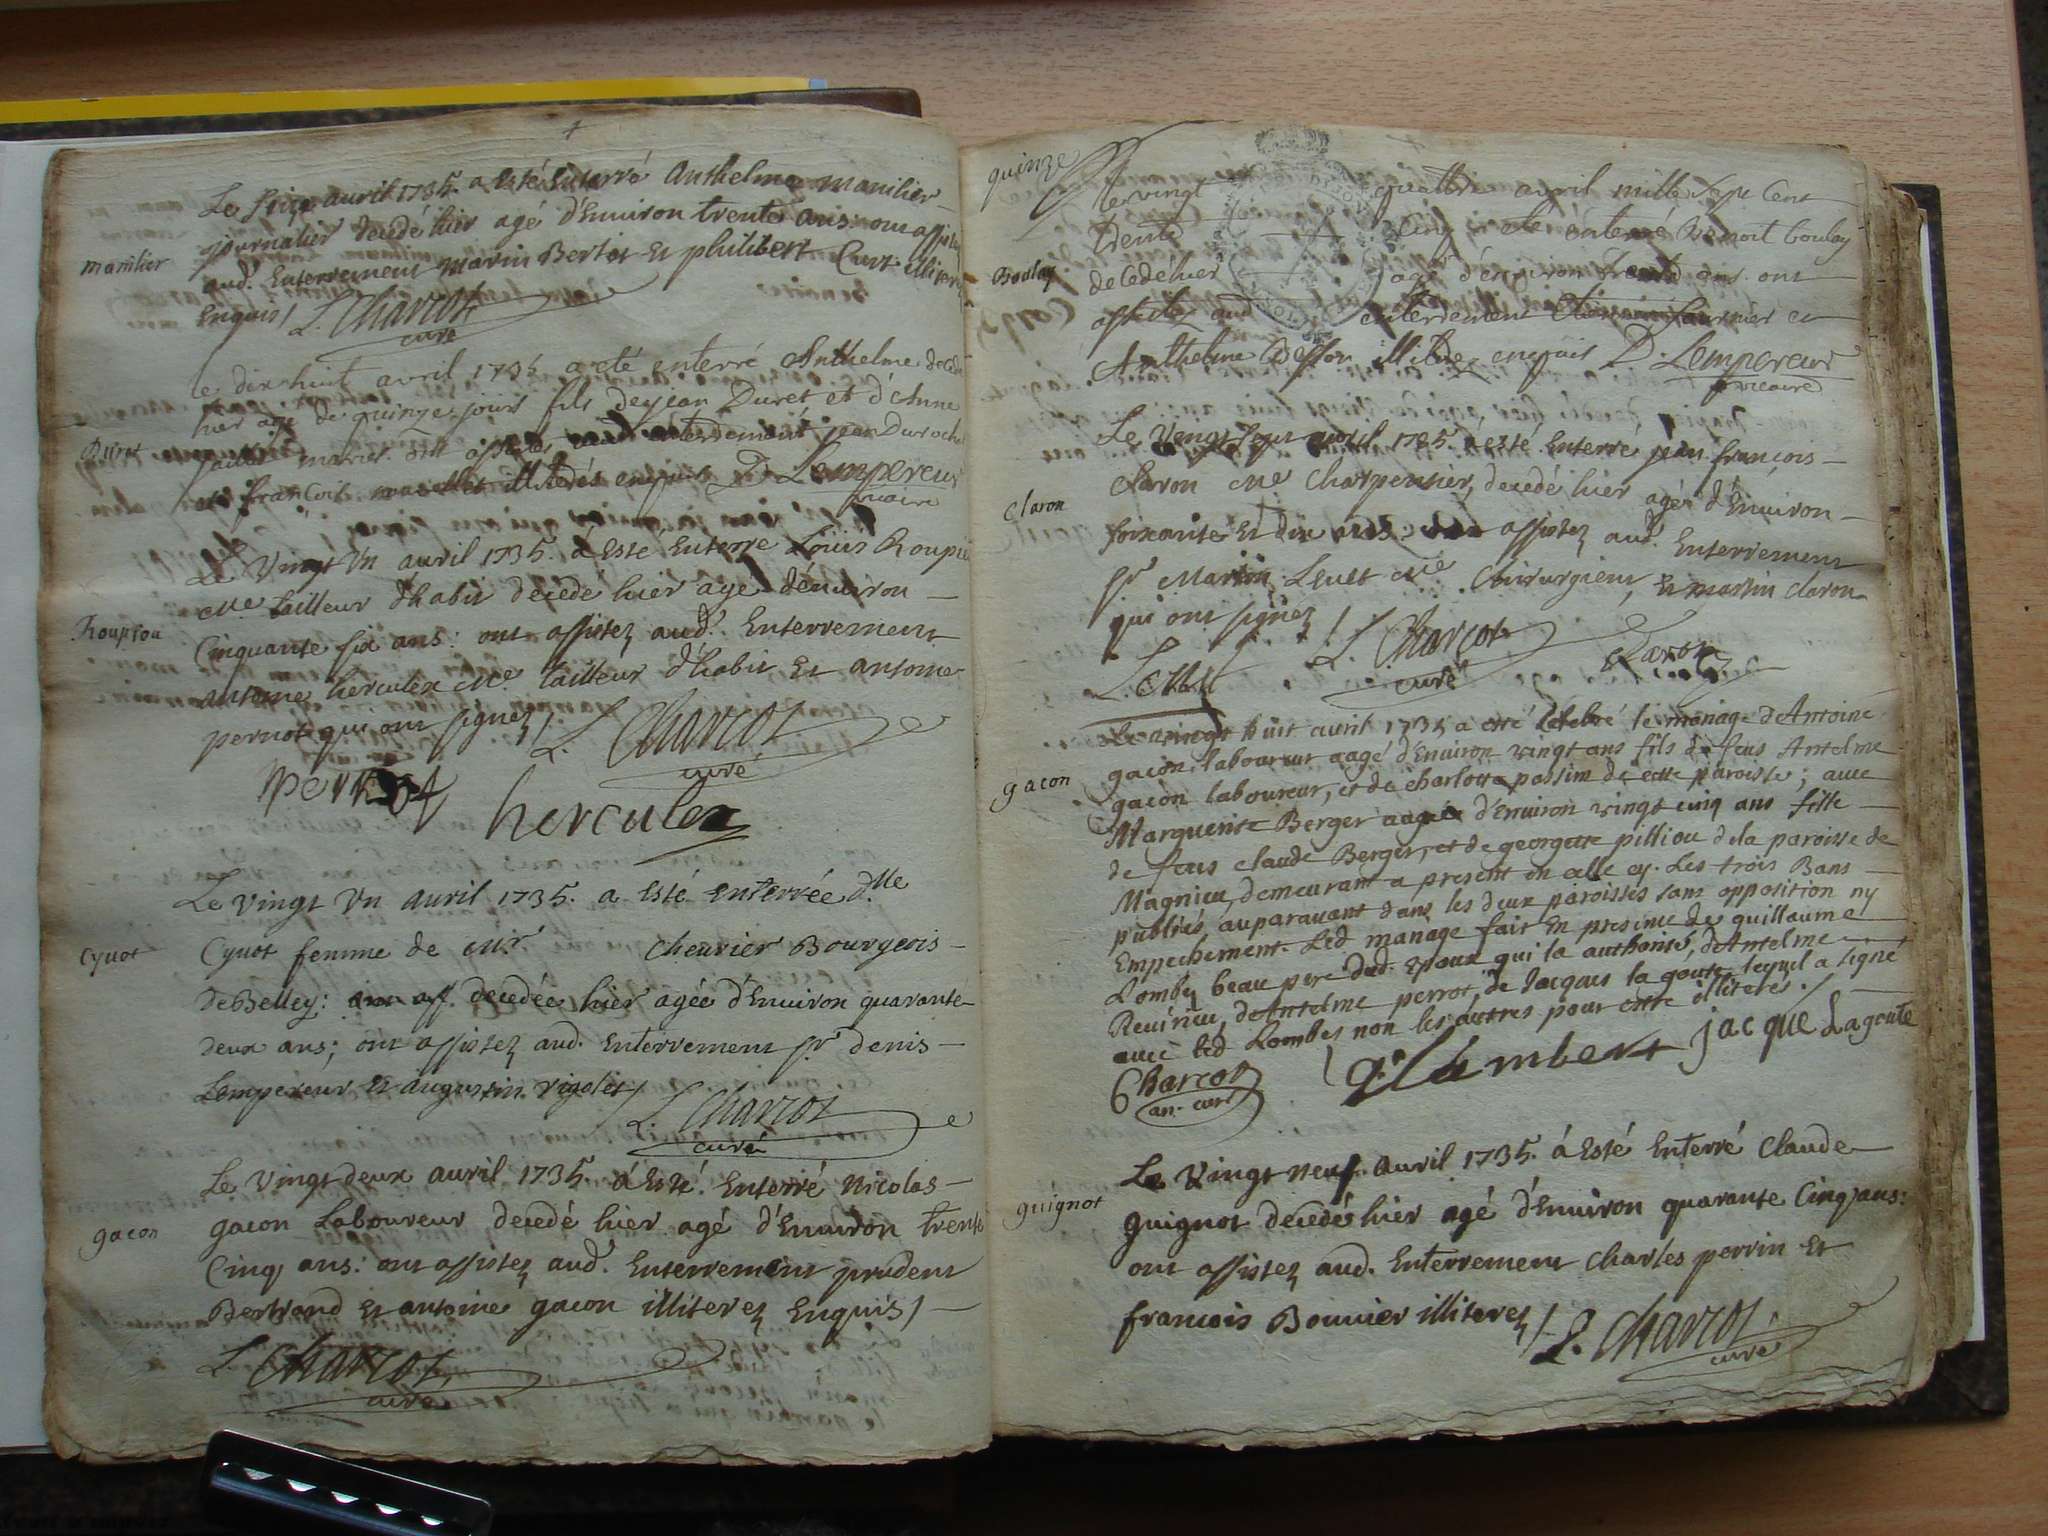 manilier
Le seize avril 1735. a Esté Enterré Anthelme manilier
journalier decedé hier agé d'Environ trente ans: ont assistez
aud. Enterrement marin Bertet Et philibert
Enquis / L. Charcot
curé
Duret
le dix huit avril 1735 a eté enterré Anthelme decedé
hier agé de quinze jours fils de jean Duret et d'Anne
mariés. ont assistez aud enterrement jean
et françois illiterés enquis D. Lempereur
vicaire
Roupiou
Le Vingt Vn avril 1735. á Esté Enterré Loüis
Me tailleur d'habit decedé hier agé d'énuiron
Cinquante six ans: ont assistez aud. Enterrement
antoine herculex Me. tailleur d'habit Et antoine
pernot qui ont signez / L. Charcot
curé
pernot
herculex
Cyuot
Le Vingt Vn avril 1735. a Esté enterrée d.lle
Cyuot femme de mr. cheurier Bourgeois
de Belley: decedée hier agée d'Enuiron quarante
deux ans; ont assistez aud. Enterrement sr. denis
Lempereur Et augustin rigolet / L. Charcot
curé
gacon
Le Vingt deux avril 1735. á Esté. Enterré Nicolas
gacon Laboureur decedé hier agé d'Enuiron trente
Cinq ans: ont assistez aud. Enterrement prudent
Bertrand Et antoine gacon illiterez Enquis /
L. Charcot
curé
quinze
Boulay
le vingt quattre avril mille sept cent
trente cinq a eté enterré Benoit boulay
decedé hier agé d'environ trente ans ont
assistez aud enterrement fournier et
Anthelme illitérez enquis D. Lempereur
vicaire
Claron
Le Vingt sept avril 1735. a esté. Enterré jean françois
Claron Me Charpentier, decedé hier agé d'Enuiron
soixante Et dix ans: assistez aud. Enterrement
sr. Martin Me Chirurgien, Et martin claron
qui ont signez / L. Charcot
curé
claron
gacon
Le vingt huit avril 1735 a esté celebré le mariage d'Antoine
gacon laboureur aagé d'Enuiron vingt ans fils de feus Antelme
gacon laboureur, et de charlotte passim de cette paroisse; avec
Marguerite Berger aagée d'Enuiron vingt cinq ans fille
de feus claude Berger, et de georgette pilliou de la paroisse de
Magnieu, demeurant a present en celle cy. Les trois Bans
publiés, auparavant dans les deux paroisses sans opposition ny
Empechement. Led mariage fait En presence de guillaume
Lombes beau pere dud. Epoux qui la authorisé, d'Antelme
Reuirieu, d'Antelme perrot, de Jacques la goute lequel a signé
auec led Lombes non les autres pour estre illiteres. /
Charcot
an. curé
jacque Lagoute
guignot
Le Vingt neuf. avril 1735. á Esté Enterré Claude
guignot decedé hier agé d'Enuiron quarante Cinq ans:
ont assistez aud. Enterrement Charles perrin Et
françois Bonnier illiterez / L. Charcot
curé